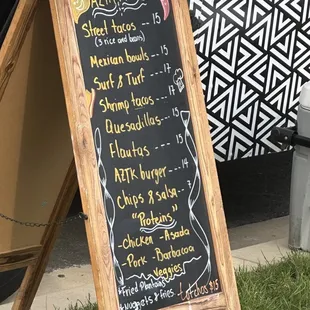 AZTK
Street tacos -- 15
(3 rice and beans)
Mexican bowls -- 15
Surf & Turf --- 17
Shrimp tacos --- 17
Quesadillas -- 15
Flautas --- 15
AZTK burger -- 14
Chips & salsa - 7
"Proteins"
-Chicken -Asada
-Pork -Barbacoa
-Veggies
·Fried Plantains
·nuggets & fries -